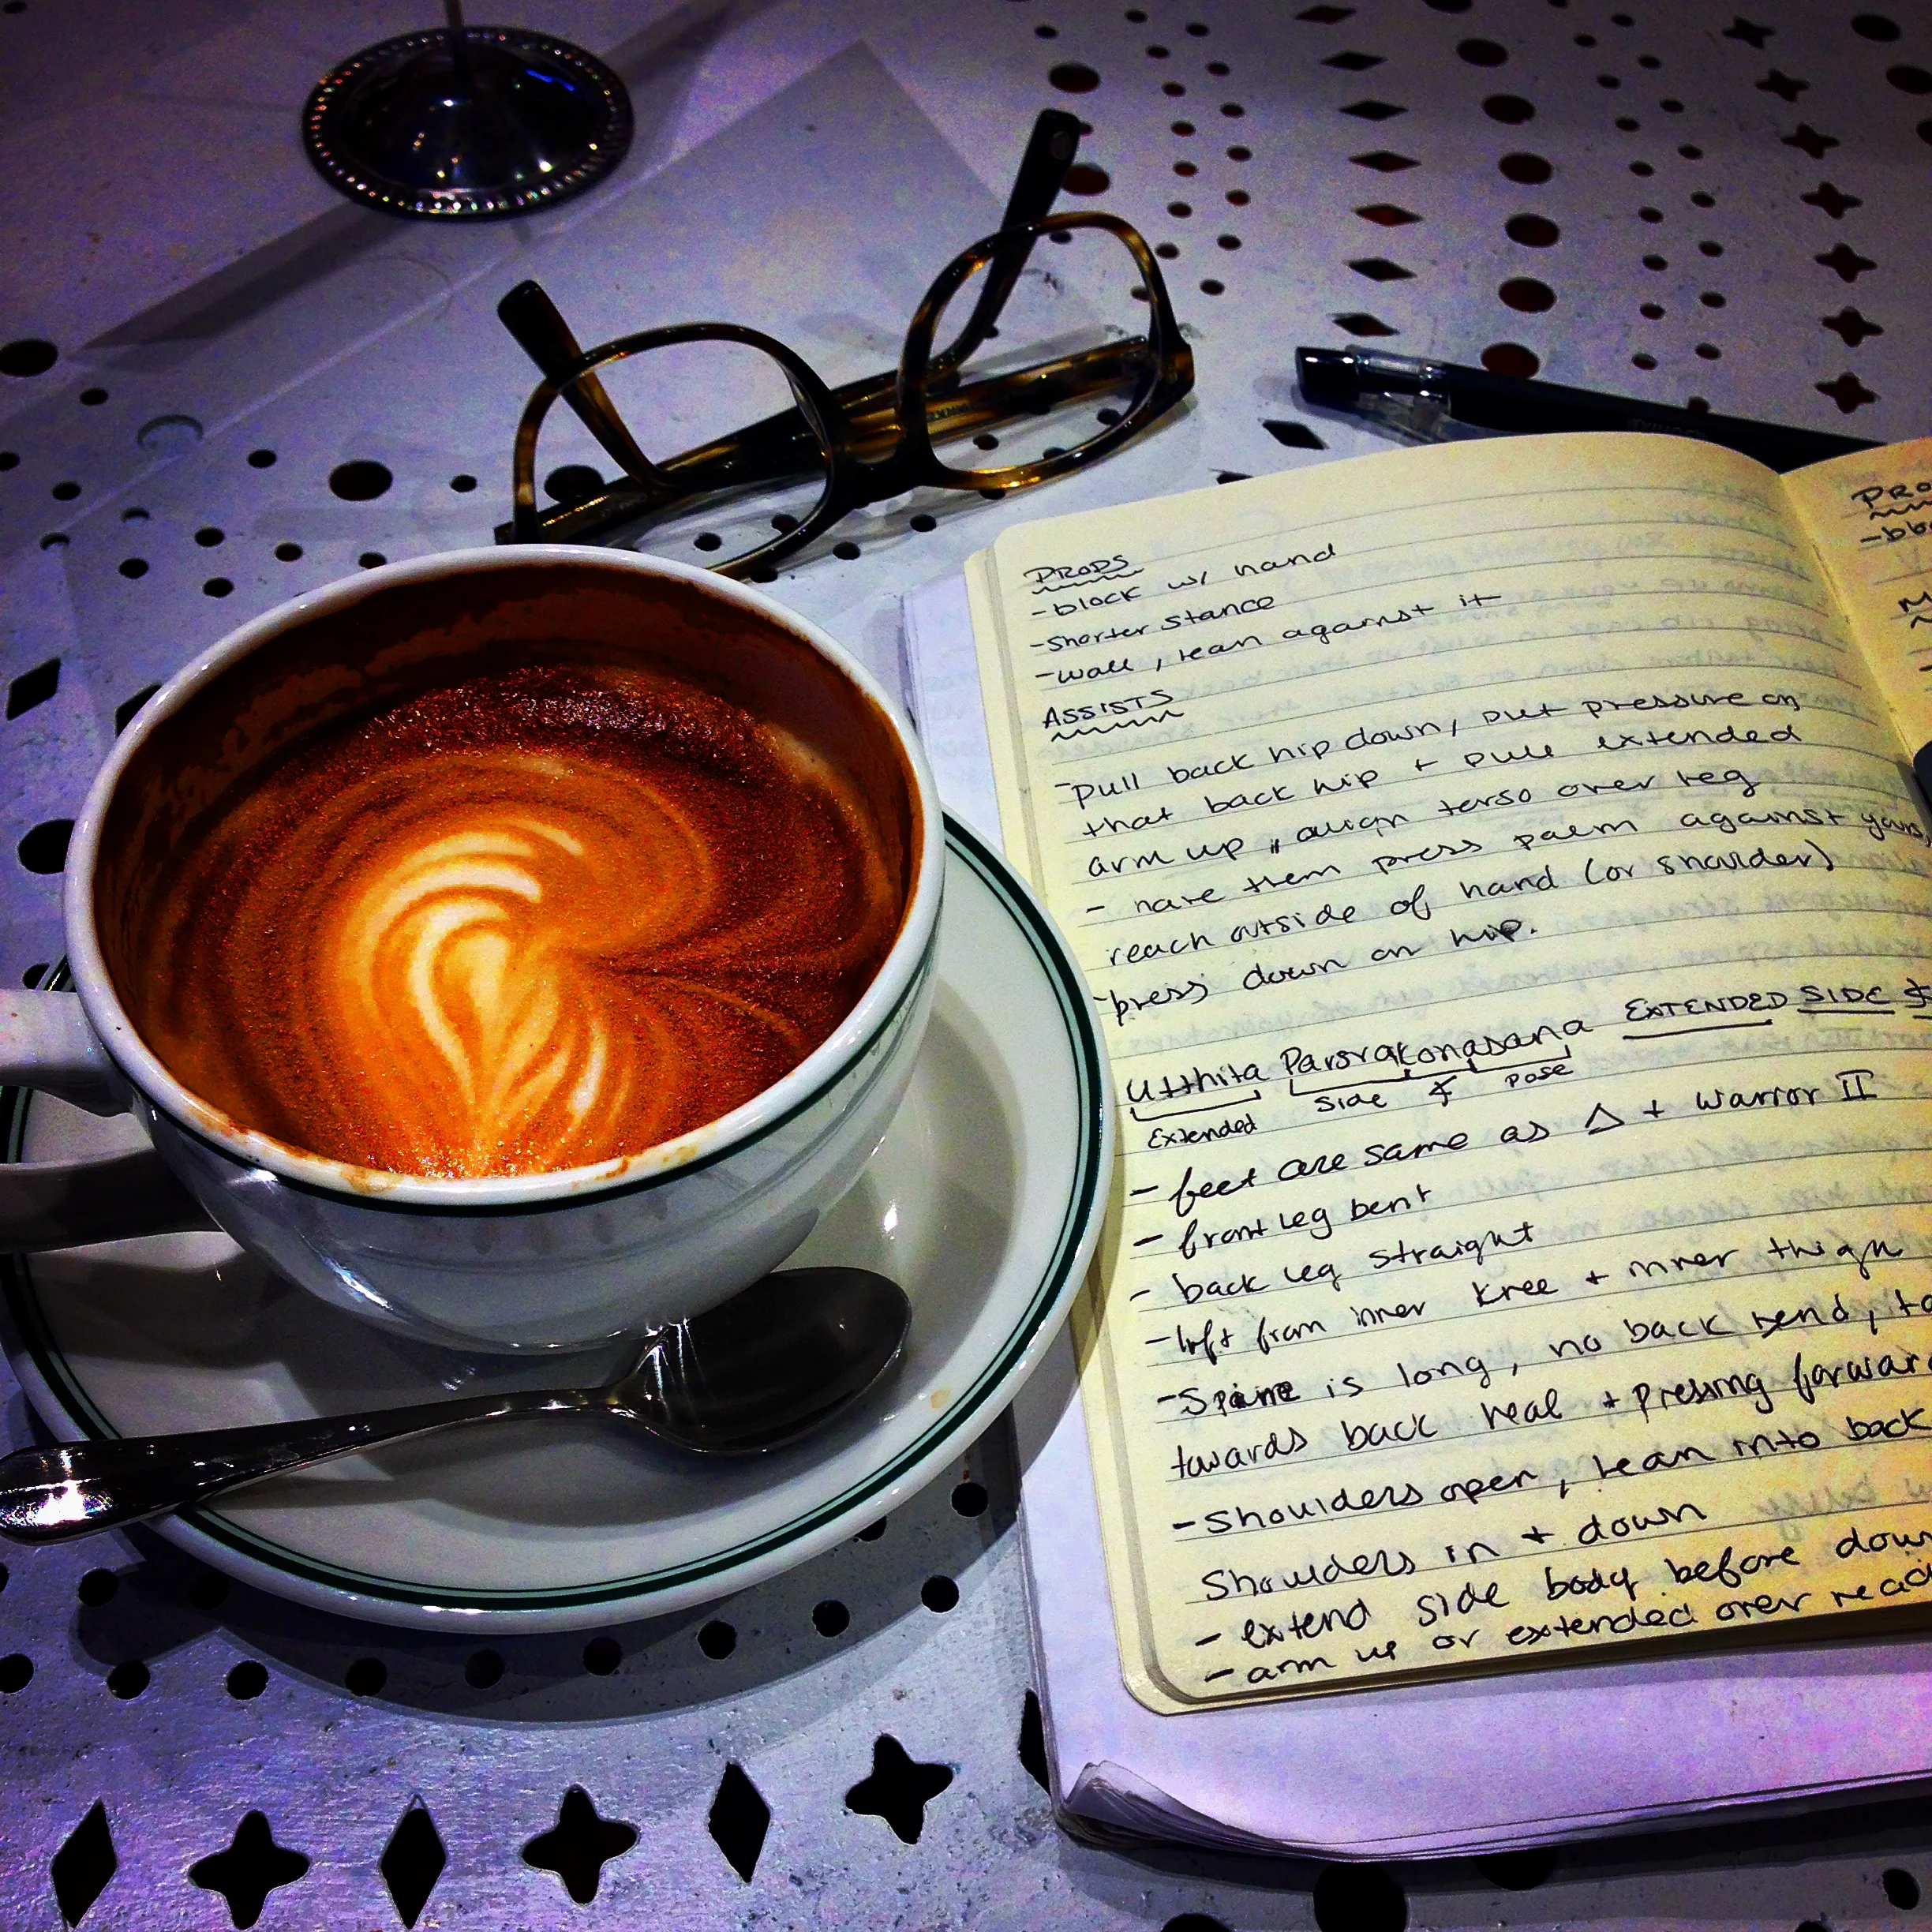 PROPS
-block w/ hand
-shorter stance
-wall, lean against it
ASSISTS
-pull back hip down, put pressure on
that back hip + pull extended
arm up, align torso over leg
- have them press palm against yours,
reach outside of hand (or shoulder)
-press down on hip.
Utthita Parsvakonasana EXTENDED SIDE ∡
Extended Side ∡ Pose
- feet are same as △ + Warrior II
- front leg bent
- back leg straight
-lift from inner knee + inner thigh
-Spine is long, no back bend,
towards back heal + pressing forward
-Shoulders open, lean into back
Shoulders in + down
- extend side body before down
- arm up or extended over
PRO